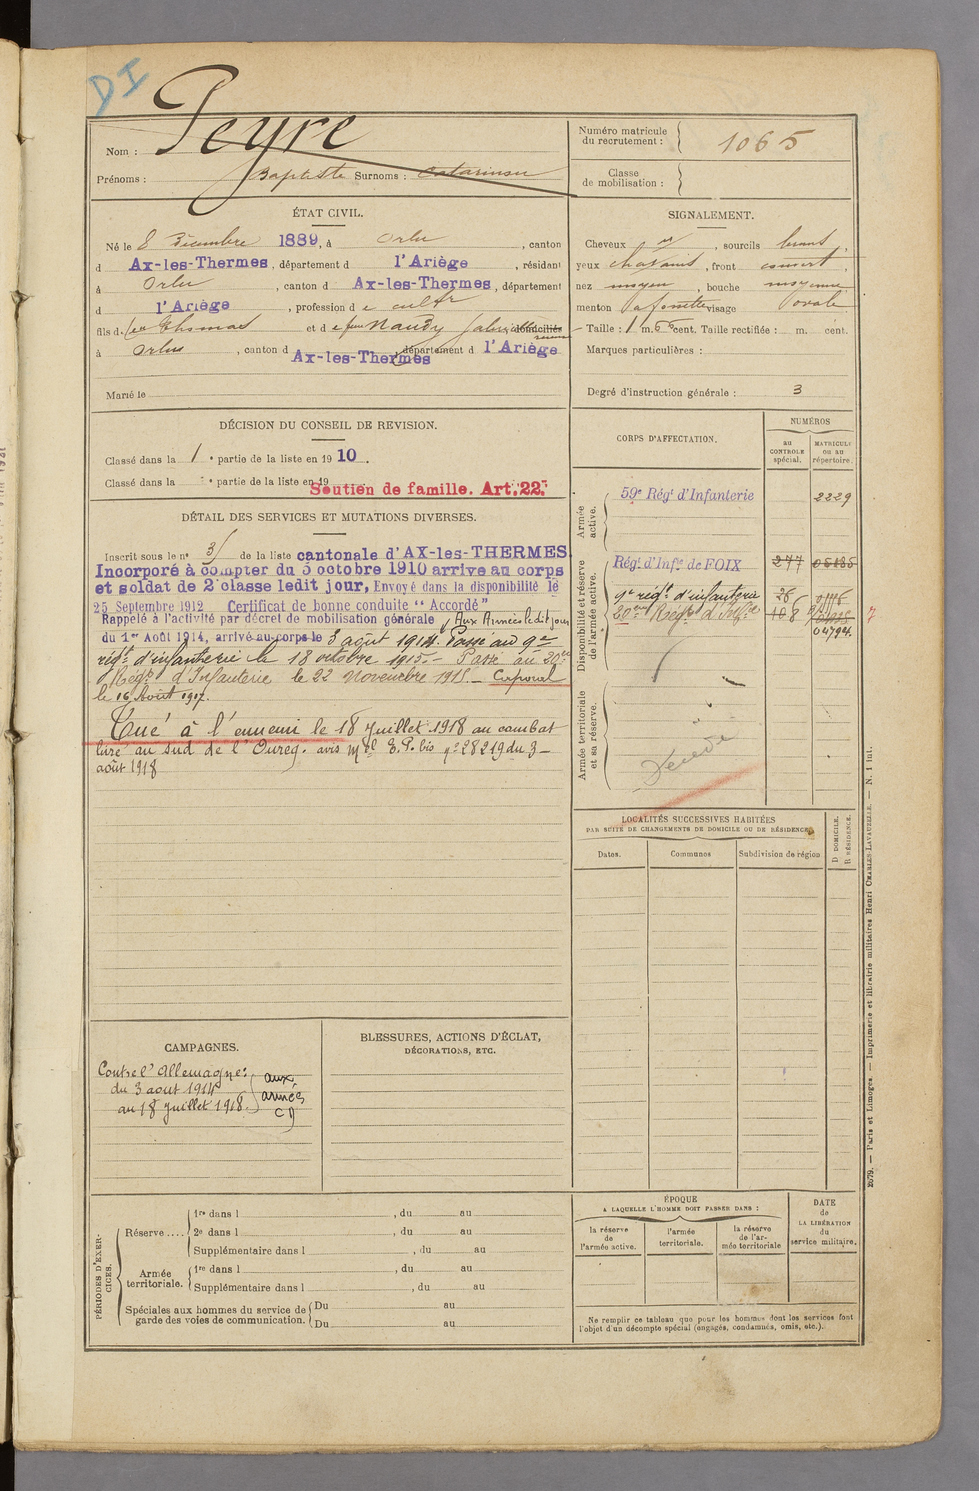 DI
Nom : Peyre
Prénoms : Baptiste Surnoms :
Numéro matricule du recrutement : 1065
Classe de mobilisation :
ÉTAT CIVIL.
Né le 8 Décembre 1889, à Orlu, canton
d Ax-les-Thermes, département d l'Ariège, résidant
à Orlu, canton d Ax-les-Thermes, département
d l'Ariège, profession d e cultr
fils d. feu Thomas et d e feue Naudy domiciliés
à Orlu, canton d Ax-les-Thermes département d l'Ariège
Marié le
SIGNALEMENT.
Cheveux , sourcils bruns,
yeux chatains, front couvert,
nez moyen, bouche moyenne,
menton à fossette visage ovale
Taille : 1 m. cent. Taille rectifiée : m. cent.
Marques particulières :
Degré d'instruction générale : 3
DÉCISION DU CONSEIL DE REVISION.
Classé dans la 1 e partie de la liste en 1910.
Classé dans la e partie de la liste en 19
Soutien de famille. Art. 22.
DÉTAIL DES SERVICES ET MUTATIONS DIVERSES.
Inscrit sous le n° 31 de la liste cantonale d'AX-les-THERMES
Incorporé à compter du 3 octobre 1910 arrive au corps
et soldat de 2e classe ledit jour, Envoyé dans la disponibilité le
25 Septembre 1912 Certificat de bonne conduite "Accordé"
Rappelé à l'activité par décret de mobilisation générale Aux Armées ledit jour
du 1er Août 1914, arrivé au corps le 3 août 1914. Passé au 9e
régt d'infanterie le 18 octobre 1915. - Passé au 20e
Régt d'Infanterie le 22 Novembre 1915. - Caporal
le 16 Août 1917.
Tué à l'ennemi le 18 Juillet 1918 au combat
livré au sud de l'Ourcq. avis mel E.P. bis n° 28219 du 3-
août 1918
CORPS D'AFFECTATION.
NUMÉROS
au CONTROLE spécial.
MATRICULE ou au répertoire.
Armée active.
59e Régt d'Infanterie 2229
Disponibilité et réserve de l'armée active.
Régt d'Infie de FOIX 277
9e régt d'infanterie 26
20eme Régt d'Infie 108 04794
Armée territoriale et sa réserve.
Décédé
LOCALITÉS SUCCESSIVES HABITÉES
PAR SUITE DE CHANGEMENTS DE DOMICILE OU DE RÉSIDENCE.
Dates. Communes Subdivision de région D DOMICILE. R RÉSIDENCE.
CAMPAGNES.
Contre l'Allemagne:
du 3 aout 1914
au 18 Juillet 1918.
aux
armées
CD
BLESSURES, ACTIONS D'ÉCLAT,
DÉCORATIONS, ETC.
PÉRIODES D'EXERCICES.
Réserve .... 1re dans l , du au
2e dans l , du au
Supplémentaire dans l , du au
Armée territoriale. 1re dans l , du au
Supplémentaire dans l , du au
Spéciales aux hommes du service de garde des voies de communication. Du au
Du au
ÉPOQUE
A LAQUELLE L'HOMME DOIT PASSER DANS :
la réserve de l'armée active.
l'armée territoriale.
la réserve de l'armée territoriale
DATE de LA LIBÉRATION du service militaire.
Ne remplir ce tableau que pour les hommes dont les services font
l'objet d'un décompte spécial (engagés, condamnés, omis, etc.).
2679. — Paris et Limoges. — Imprimerie et librairie militaires Henri CHARLES-LAVAUZELLE. — N. 1 int.